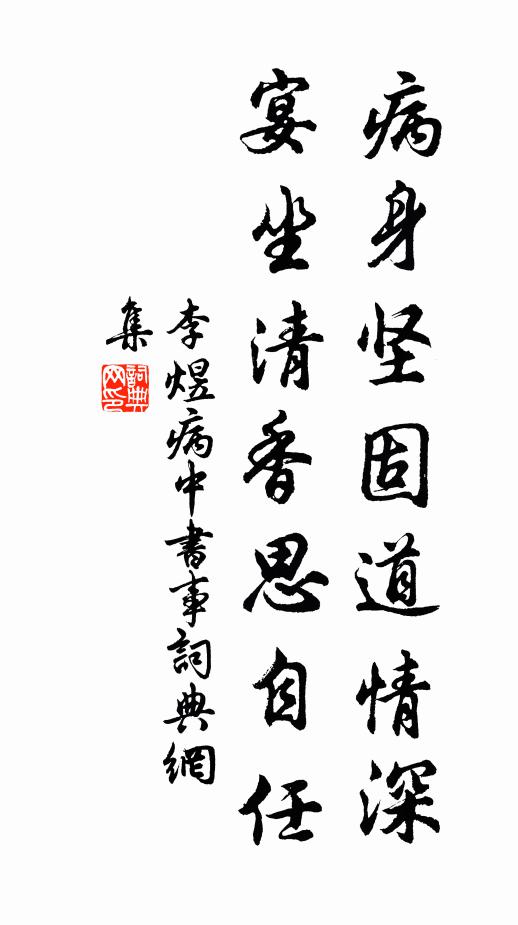 病身坚固道情深
宴坐清香思自任
李煜病中書事詞典網
集
詞典
网印